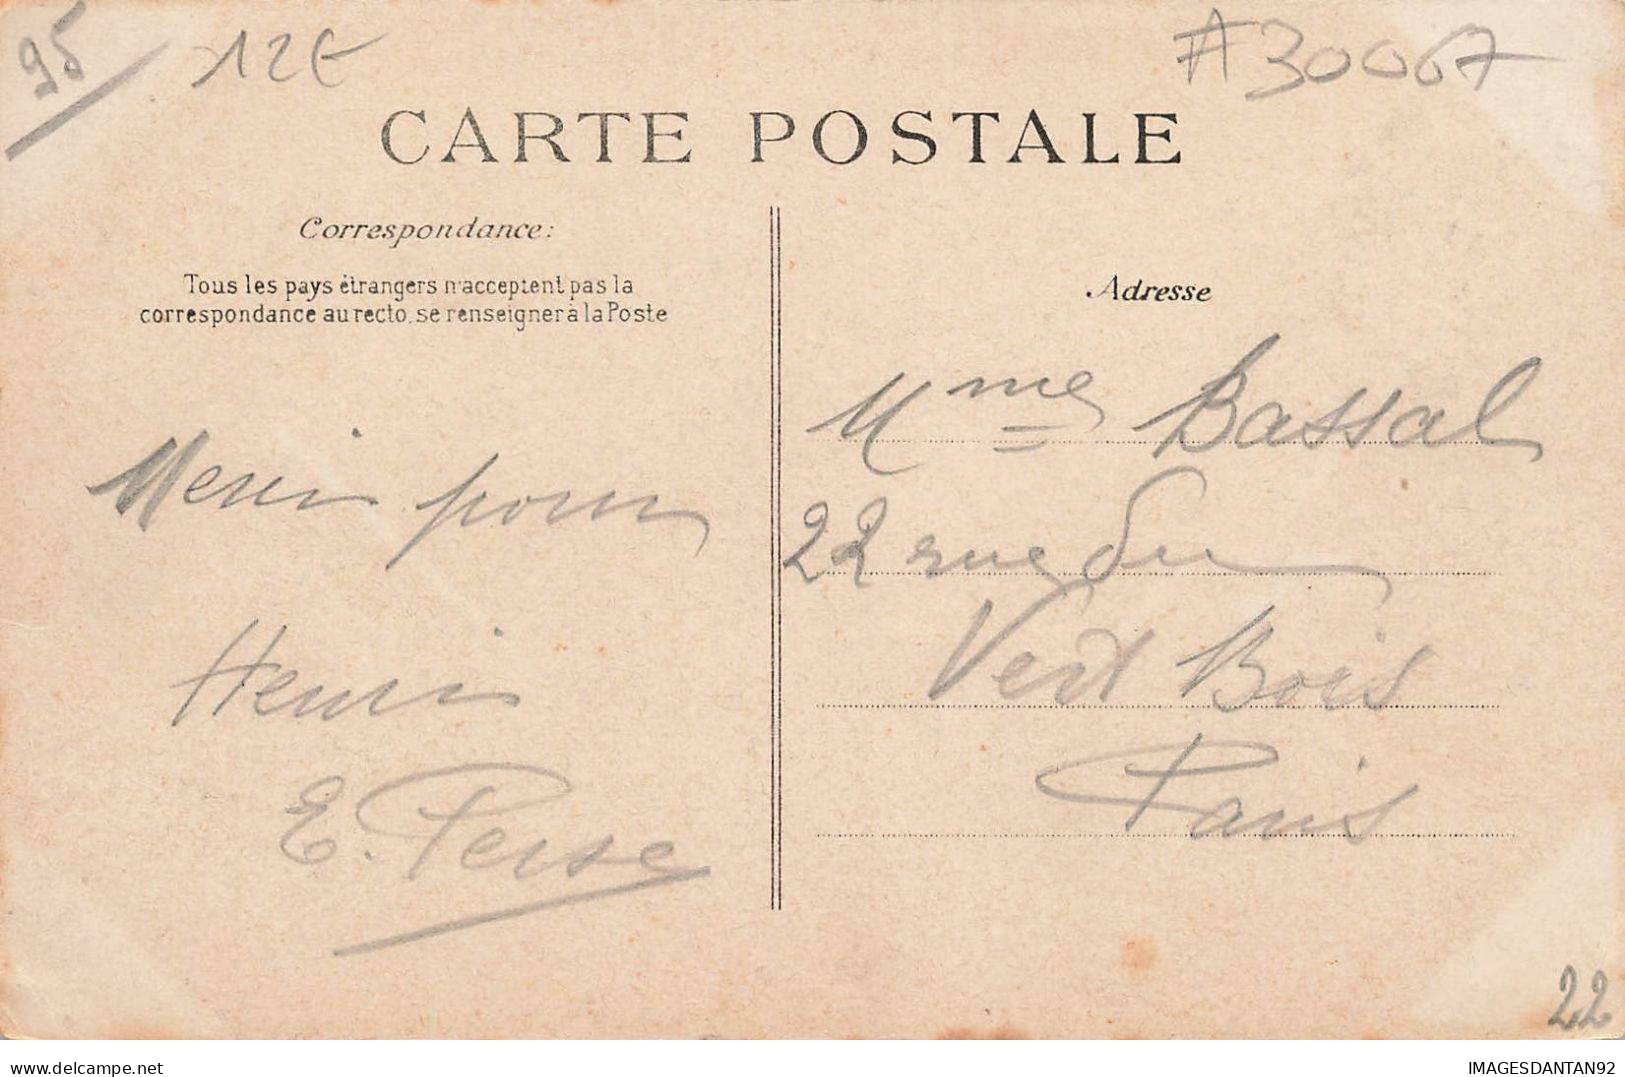 95 12€ #30067
CARTE POSTALE
Correspondance:
Tous les pays étrangers n'acceptent pas la
correspondance au recto, se renseigner à la Poste
Merci pour
Henri
E. Perse
Adresse
Mme Bassal
22 rue du
Vert Bois
Paris
22
delcampe.net
IMAGESDANTAN92